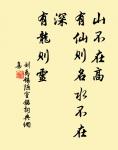 山不在高
有仙則名水不在
深
有龍則靈
劉禹錫陋室銘詞典網